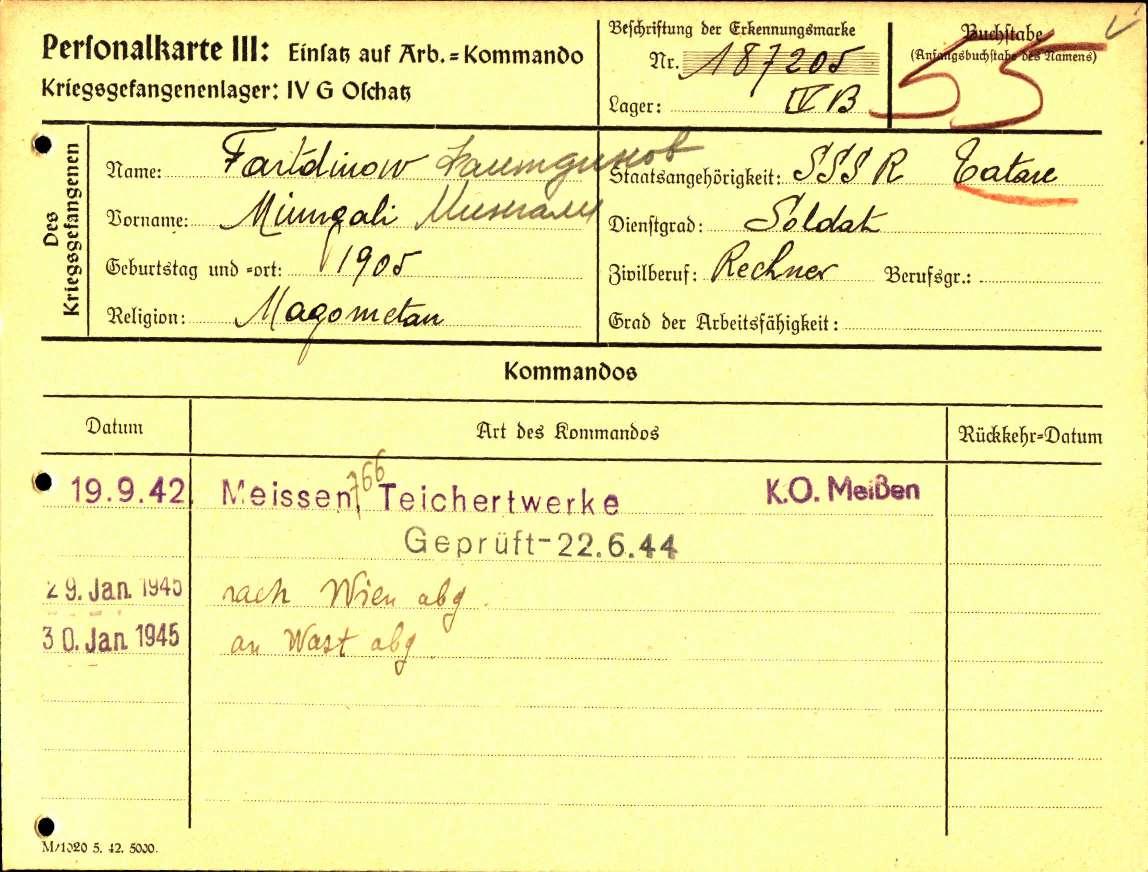 Personalkarte III: Einsatz auf Arb.=Kommando
Kriegsgefangenenlager: IV G Oschatz
Beschriftung der Erkennungsmarke
Nr. 187205
Lager: IV B
Buchstabe
(Anfangsbuchstabe des Namens)
Des Kriegsgefangenen
Name: Faitdinow Фаитдинов
Vorname: Minngali Мингали
Geburtstag und =ort: 1905
Religion: Magometan
Staatsangehörigkeit: SSSR Tatare
Dienstgrad: Soldat
Zivilberuf: Rechner Berufsgr.:
Grad der Arbeitsfähigkeit:
Kommandos
Datum Art des Kommandos Rückkehr=Datum
19.9.42 Meissen, 766 Teichertwerke K.O. Meißen
Geprüft-22.6.44
29. Jan. 1945 nach Wien abg.
30. Jan. 1945 an Wast abg
M/1020 5. 42. 5000.